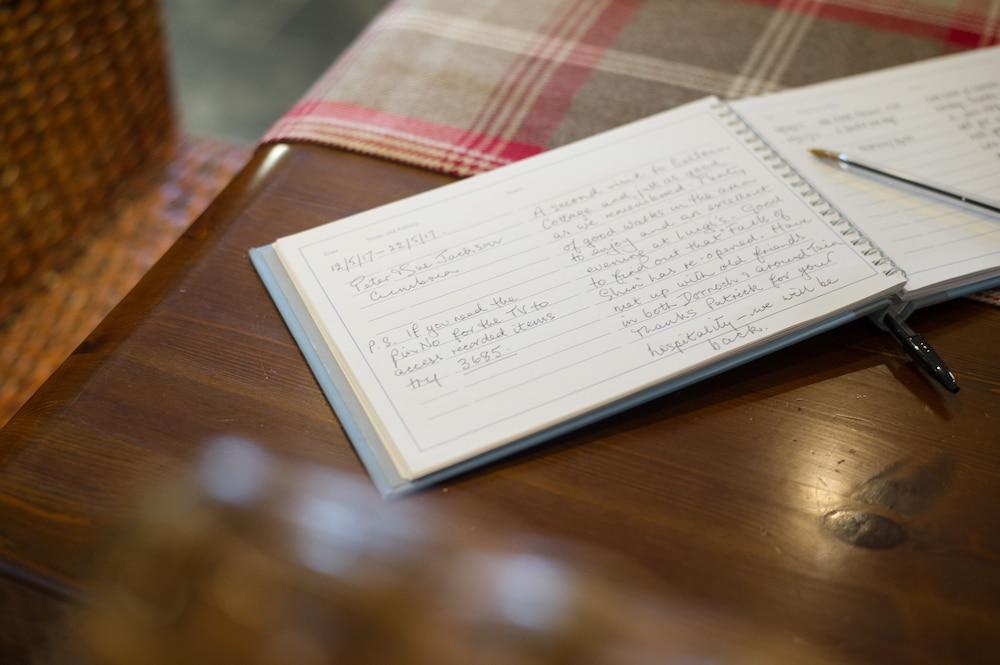 12/5/17 – 22/5/17.
Peter & Sue Jackson
Cumbria
P.S. If you need the
Pin No for the TV to
access recorded items
try 3685.
A second visit to
Cottage and just as good
as we remembered. Plenty
of good walks in the area
to enjoy and an excellent
evening at Luigi's. Good
to find out that "Falls of
Shin" has re-opened. Have
met up with old friends
in both Dornoch & around Tain
Thanks Patrick for your
hospitality – we will be
back.